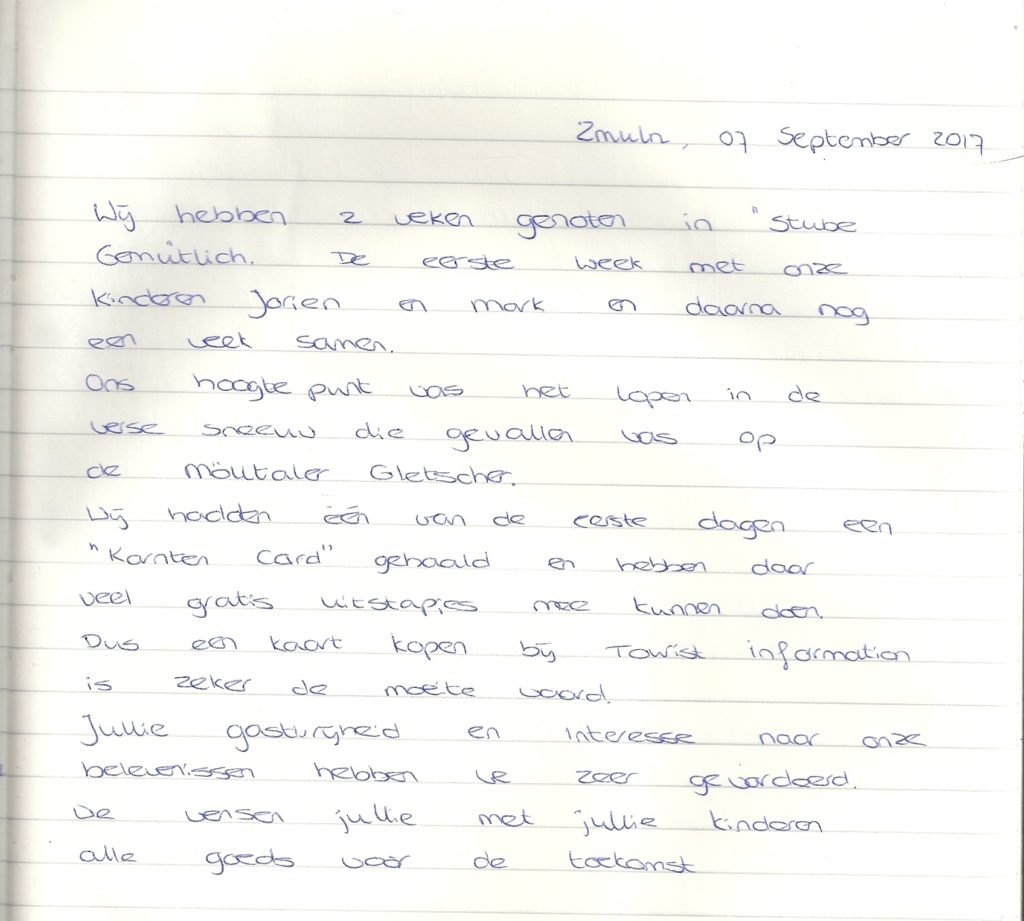 Zmuln, 07 September 2017
Wij hebben 2 weken genoten in "Stube
Gemütlich. De eerste week met onze
kinderen Jorien en Mark en daarna nog
een week samen.
Ons hoogte punt was het lopen in de
verse sneeuw die gevallen was op
de Möltaler Gletscher.
Wij hadden één van de eerste dagen een
"Karnten Card" gehaald en hebben daar
veel gratis uitstapjes mee kunnen doen.
Dus een kaart kopen bij Tourist information
is zeker de moeite waard.
Jullie gastvrijheid en interesse naar onze
belevenissen hebben we zeer gewardeerd.
We wensen jullie met jullie kinderen
alle goeds voor de toekomst